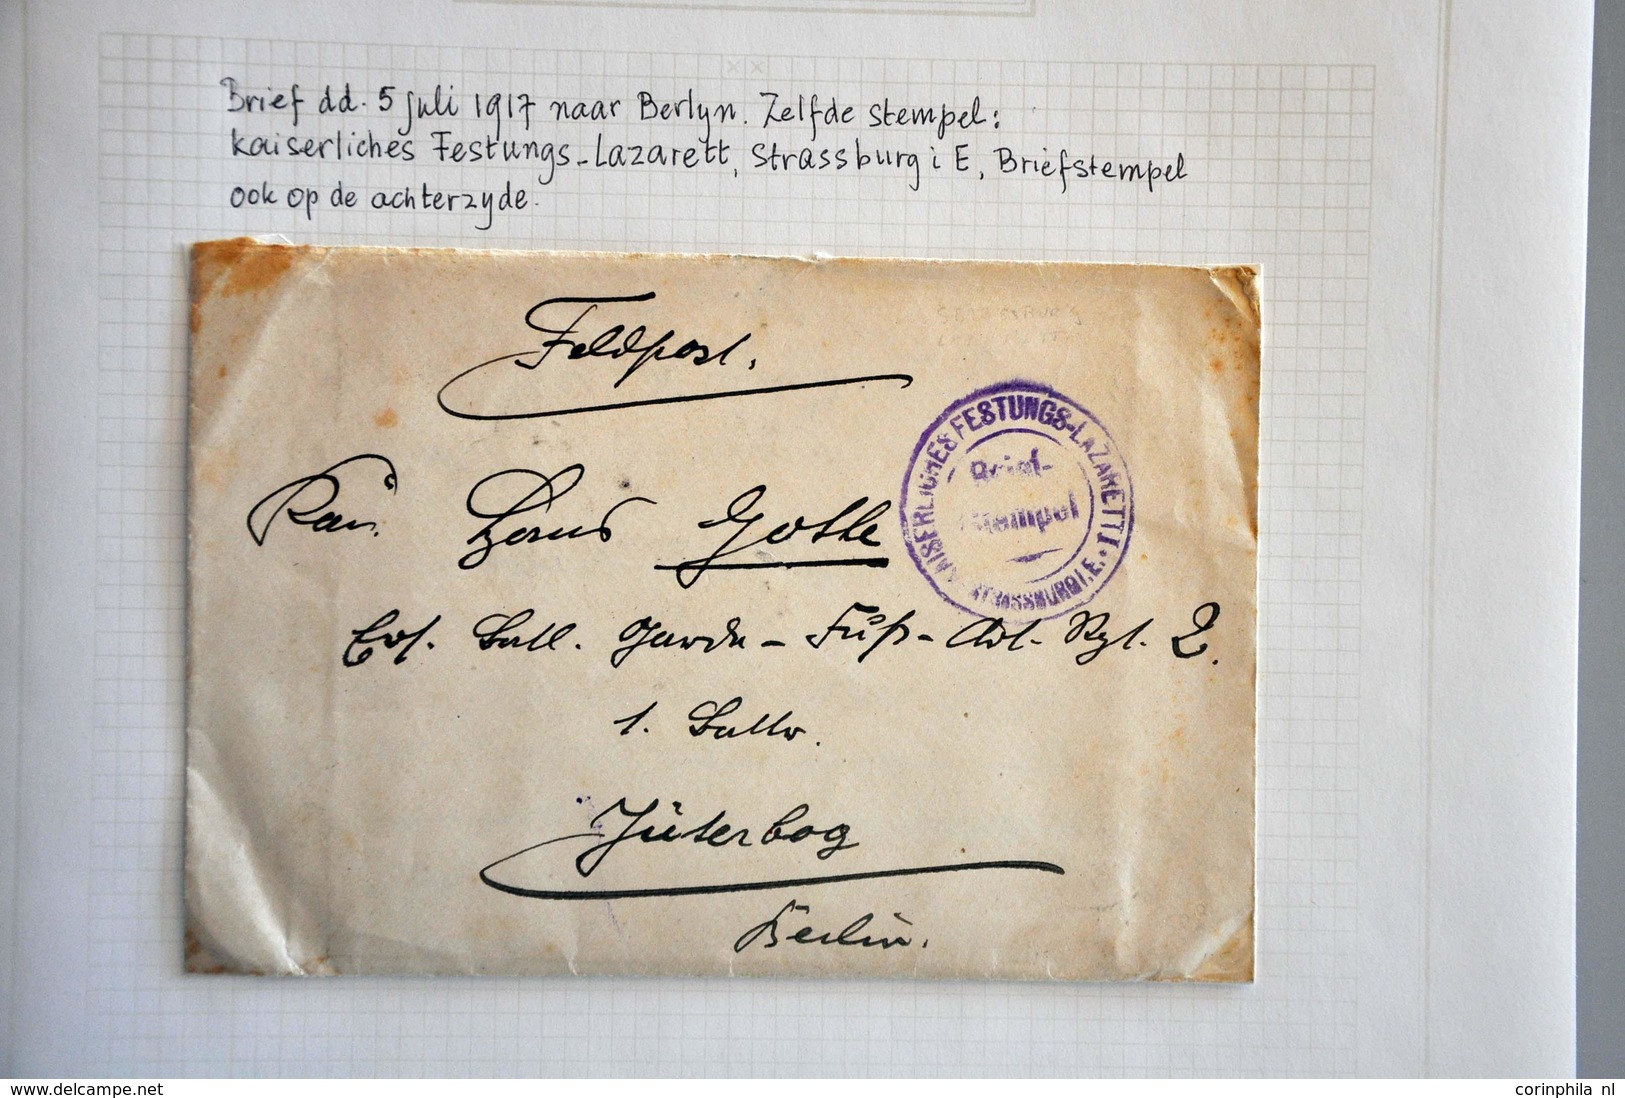 Brief dd. 5 juli 1917 naar Berlyn. Zelfde stempel:
kaiserliches Festungs-Lazarett, Strassburg i E, Briefstempel
ook op de achterzyde.
Feldpost.
KAISERLICHES FESTUNGS-LAZARETT I.
Brief-
stempel
STRASSBURG I. E.
Kan.
Ers. Batl. Garde-Fuß-Art-Rgt. 2.
1. Battr.
Jüterbog
Berlin.
www.delcampe.net
corinphila nl